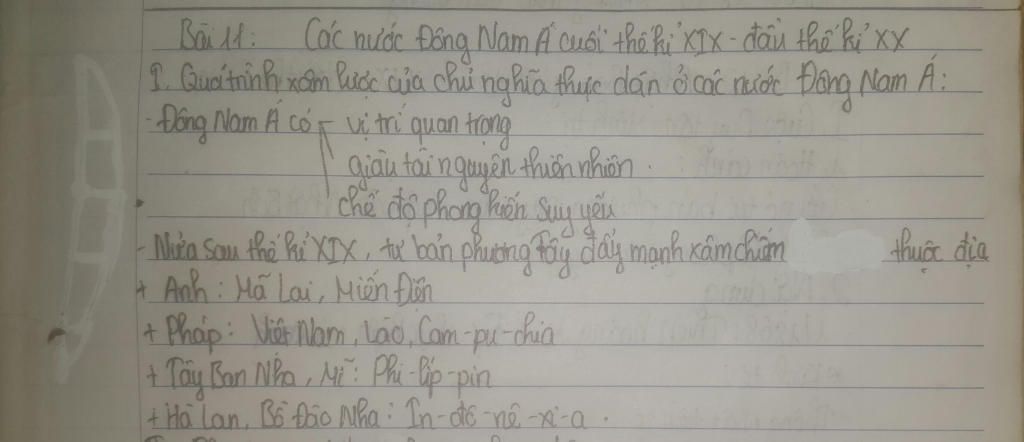 Bài 11: Các nước Đông Nam Á cuối thế kỉ XIX - đầu thế kỉ XX
I. Quá trình xâm lược của chủ nghĩa thực dân ở các nước Đông Nam Á:
- Đông Nam Á có - vị trí quan trọng
giàu tài nguyên thiên nhiên.
chế độ phong kiến suy yếu
- Nửa sau thế kỉ XIX, tư bản phương Tây đẩy mạnh xâm chiếm thuộc địa
+ Anh: Mã Lai, Miến Điện
+ Pháp: Việt Nam, Lào, Cam-pu-chia
+ Tây Ban Nha, Mĩ: Phi-líp-pin
+ Hà Lan, Bồ Đào Nha: In-đô-nê-xi-a.